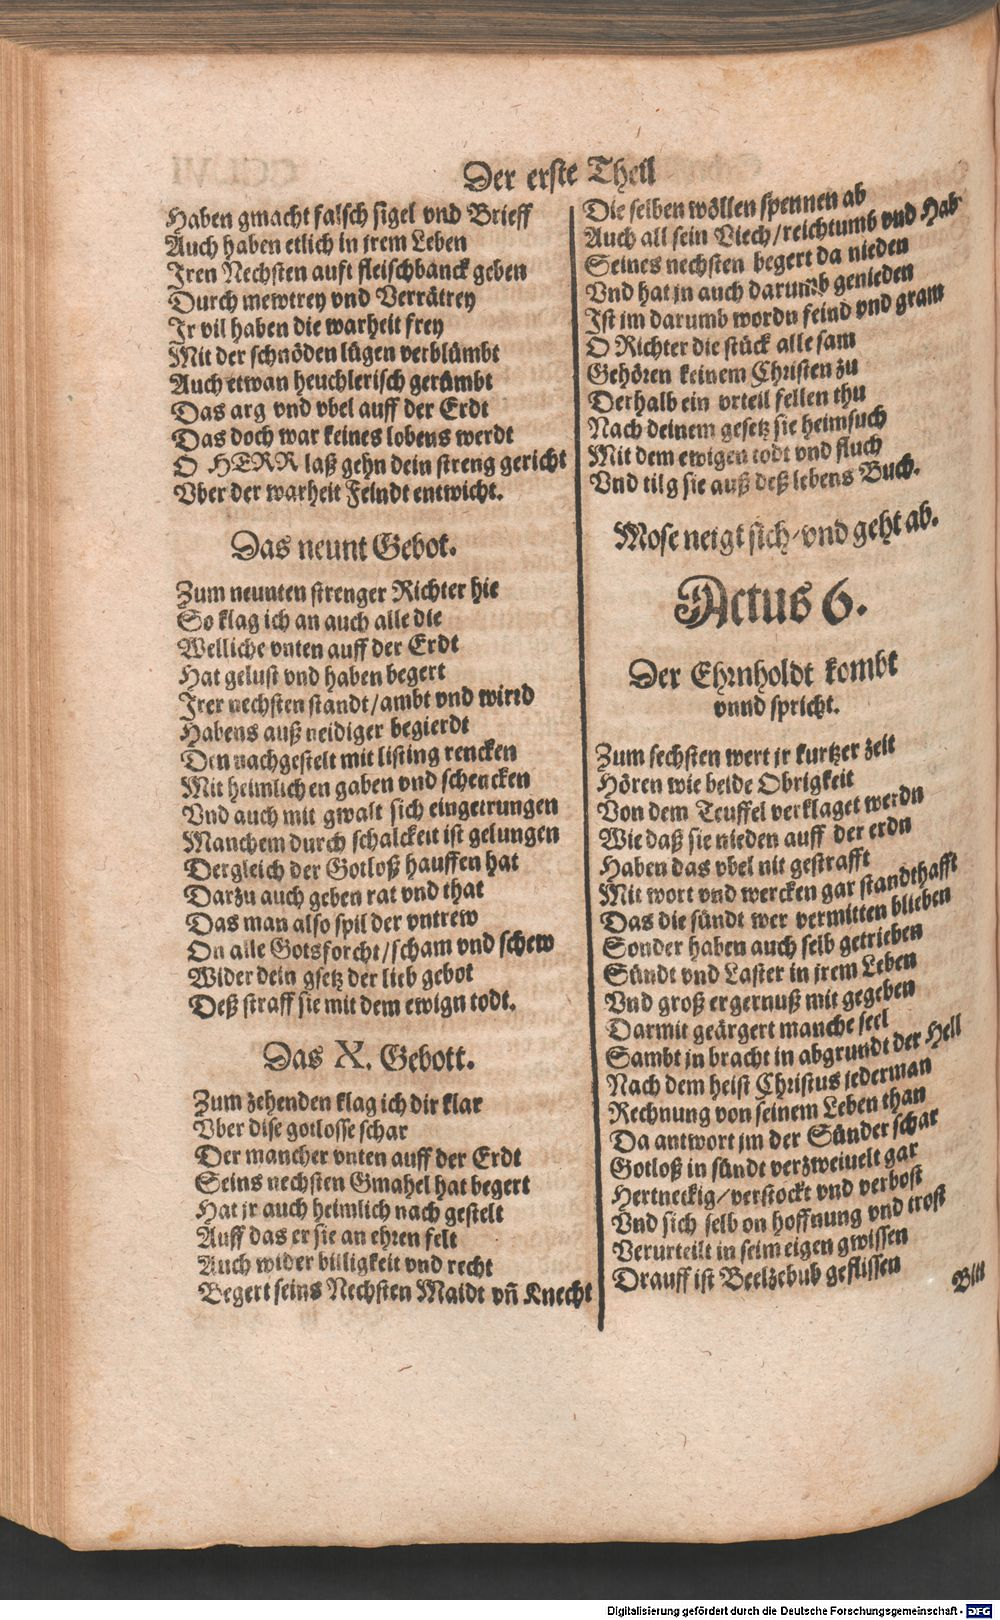 Der erste Theil
Haben gmacht falsch sigel vnd Brieff
Auch haben etlich in jrem Leben
Jren Nechsten auff fleischbanck geben
Durch mewtrey vnd Verrätrey
Jr vil haben die warheit frey
Mit der schnöden lügen verblümbt
Auch etwan heuchlerisch gerümbt
Das arg vnd vbel auff der Erdt
Das doch war keines lobens werdt
O HERR laß gehn dein streng gericht
Vber der warheit Feindt entwicht.
Das neunt Gebot.
Zum neunten strenger Richter hie
So klag ich an auch alle die
Welliche vnten auff der Erdt
Hat gelust vnd haben begert
Jrer nechsten standt/ambt vnd wird
Habens auß neidiger begierdt
Den nachgestelt mit listing rencken
Mit heimlichen gaben vnd schencken
Vnd auch mit gwalt sich eingetrungen
Manchem durch schalckeit ist gelungen
Dergleich der Gotloß hauffen hat
Darzu auch geben rat vnd that
Das man also spil der vntrew
On alle Gotsforcht/scham vnd schew
Wider dein gsetz der lieb gebot
Deß straff sie mit dem ewign todt.
Das X. Gebott.
Zum zehenden klag ich dir klar
Vber dise gotlosse schar
Der mancher vnten auff der Erdt
Seins nechsten Gmahel hat begert
Hat jr auch heimlich nach gestelt
Auff das er sie an ehren felt
Auch wider billigkeit vnd recht
Begert seins Nechsten Maidt vñ Knecht
Die selben wöllen spennen ab
Auch all sein Viech/reichtumb vnd Hab
Seines nechsten begert da nieden
Vnd hat jn auch darumb genieden
Jst im darumb wordn feind vnd gram
O Richter die stück alle sam
Gehören keinem Christen zu
Derhalb ein vrteil fellen thu
Nach deinem gesetz sie heimsuch
Mit dem ewigen todt vnd fluch
Vnd tilg sie auß deß lebens Buch.
Mose neigt sich/vnd geht ab.
Actus 6.
Der Ehrnholdt kombt
vnnd spricht.
Zum sechsten wert jr kurtzer zeit
Hören wie beide Obrigkeit
Von dem Teuffel verklaget werdn
Wie daß sie nieden auff der erdn
Haben das vbel nit gestrafft
Mit wort vnd wercken gar standthafft
Das die sündt wer vermitten blieben
Sonder haben auch selb getrieben
Sündt vnd Laster in jrem Leben
Vnd groß ergernuß mit gegeben
Darmit geärgert manche seel
Sambt jn bracht in abgrundt der Hell
Nach dem heist Christus jederman
Rechnung von seinem Leben than
Da antwort jm der Sünder schar
Gotloß in sündt verzweiuelt gar
Hertneckig/verstockt vnd verbost
Vnd sich selb on hoffnung vnd trost
Verurteilt in seim eigen gwissen
Drauff ist Beelzebub geflissen
Bitt
Digitalisierung gefördert durch die Deutsche Forschungsgemeinschaft - DFG